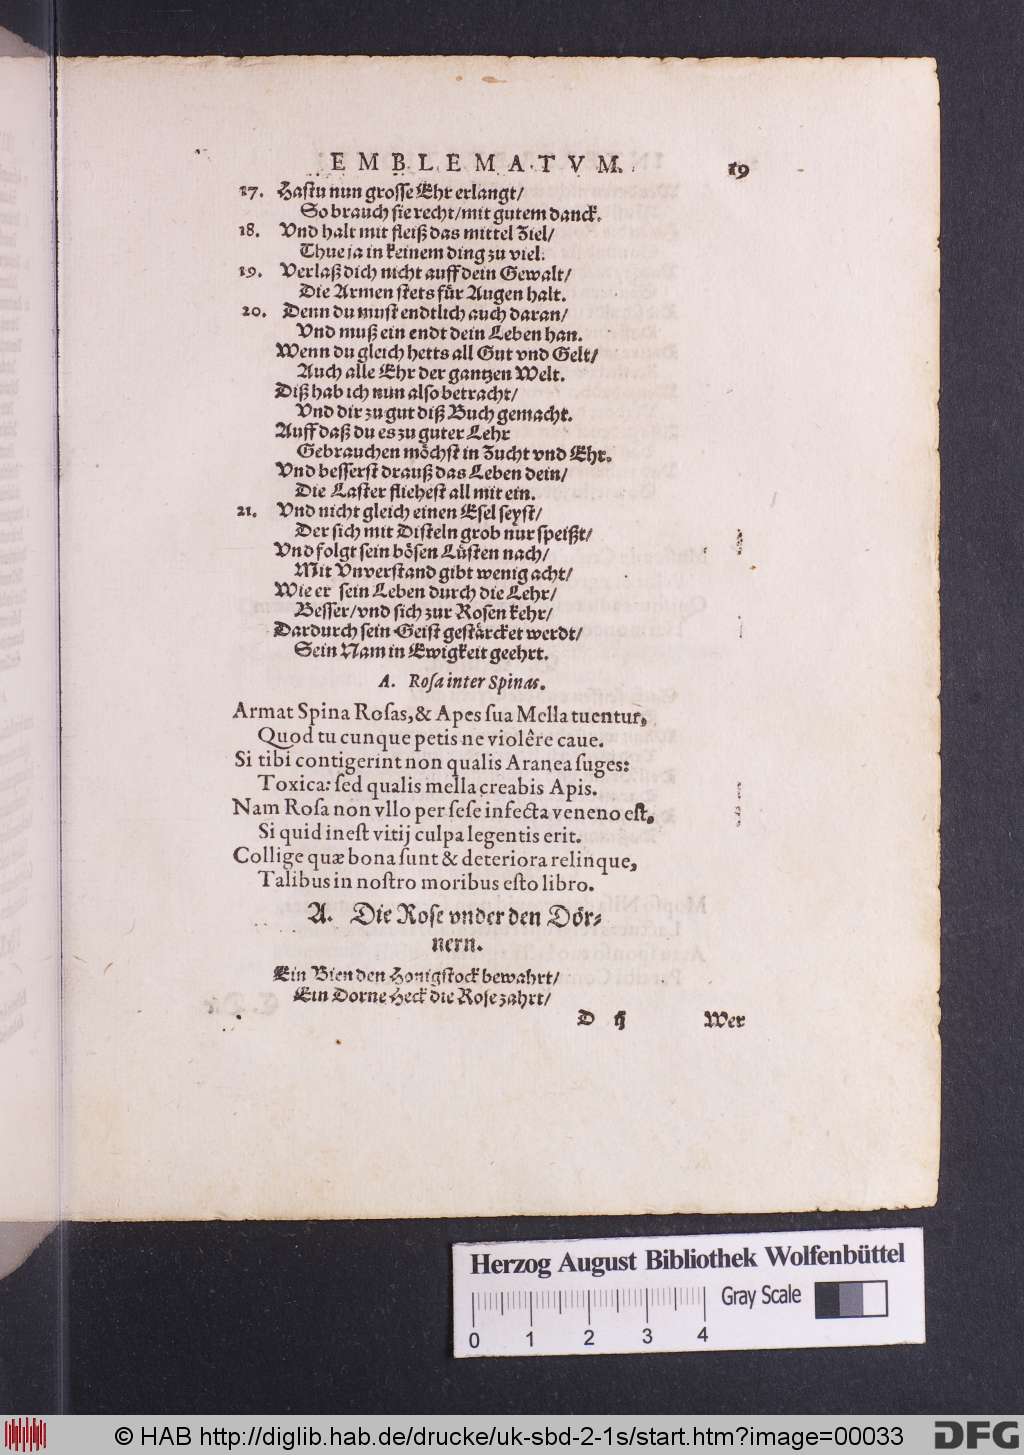 EMBLEMATVM. 19
17. Hastu nun grosse Ehr erlangt/
So brauch sie recht/mit gutem danck.
18. Vnd halt mit fleiß das mittel Ziel/
Thue ja in keinem ding zu viel.
19. Verlaß dich nicht auff dein Gewalt/
Die Armen stets für Augen halt.
20. Denn du must endtlich auch daran/
Vnd muß ein endt dein Leben han.
Wenn du gleich hetts all Gut vnd Gelt/
Auch alle Ehr der gantzen Welt.
Diß hab ich nun also betracht/
Vnd dir zu gut diß Buch gemacht.
Auff daß du es zu guter Lehr
Gebrauchen möchst in Zucht vnd Ehr.
Vnd besserst drauß das Leben dein/
Die Laster fliehest all mit ein.
21. Vnd nicht gleich einen Esel seyst/
Der sich mit Disteln grob nur speißt/
Vnd folgt sein bösen Lüsten nach/
Mit Vnverstand gibt wenig acht/
Wie er sein Leben durch die Lehr/
Besser/vnd sich zur Rosen kehr/
Dardurch sein Geist gestärcket werdt/
Sein Nam in Ewigkeit geehrt.
A. Roſa inter Spinas.
Armat Spina Roſas, & Apes ſua Mella tuentur,
Quod tu cunque petis ne violêre caue.
Si tibi contigerint non qualis Aranea ſuges:
Toxica: ſed qualis mella creabis Apis.
Nam Roſa non vllo per ſeſe infecta veneno eſt,
Si quid ineſt vitij culpa legentis erit.
Collige quæ bona ſunt & deteriora relinque,
Talibus in noſtro moribus eſto libro.
A. Die Rose vnder den Dör-
nern.
Ein Bien den Honigstock bewahrt/
Ein Dorne Heck die Rose zahrt/
D ij Wer
Herzog August Bibliothek Wolfenbüttel
Gray Scale
0 1 2 3 4
© HAB http://diglib.hab.de/drucke/uk-sbd-2-1s/start.htm?image=00033
DFG